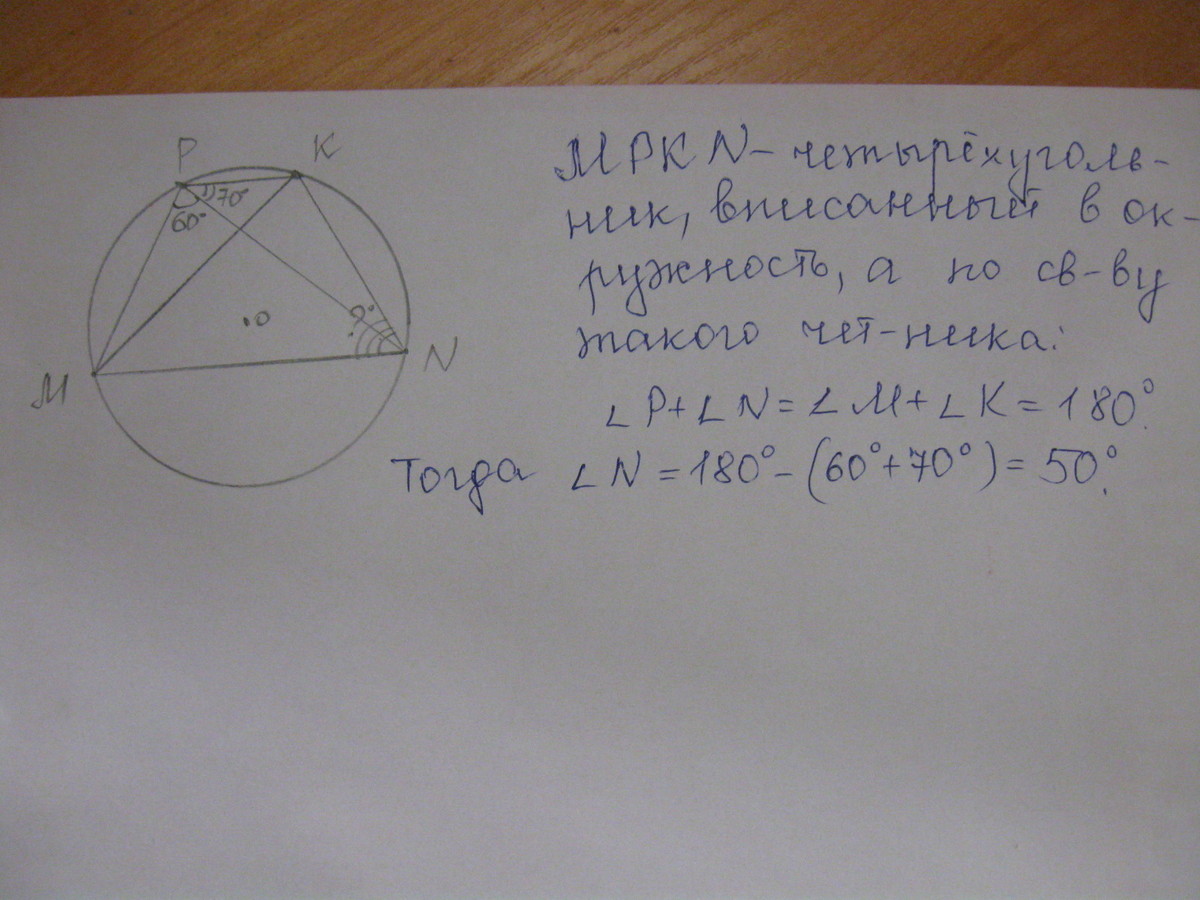 P
K
70°
60°
?°
O
M
N
MPKN – четырёхуголь-
ник, вписанный в ок-
ружность, а по св-ву
такого чет-ника:
∠P+∠N=∠M+∠K=180°.
Тогда ∠N=180°-(60°+70°)=50°.